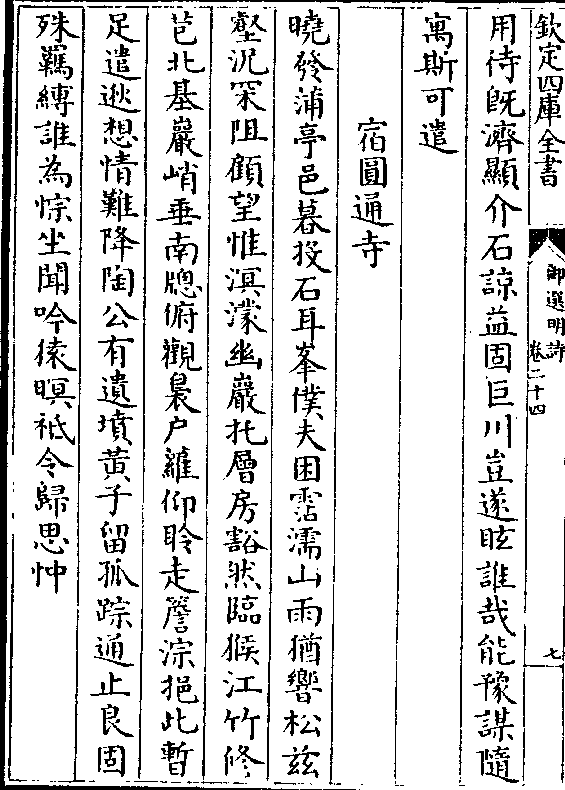 欽定四庫全書
御選明詩
卷二十四
七
用待既濟顯介石諒益固巨川豈遂眩誰哉能豫謀隨
寓斯可遣
宿圓通寺
曉發蒲亭邑暮投石耳峯僕夫困霑濡山雨猶響松兹
壑況罙阻顧望惟溟濛幽巖扥層房豁然臨猴江竹修
芑北基巖峭垂南牕俯觀裊户蘿仰聆走簷淙挹此暫
足遣逖想情難降陶公有遺墳黄子留孤踪通止良固
殊羈縛誰為悰坐聞吟猿暝祗令歸思忡